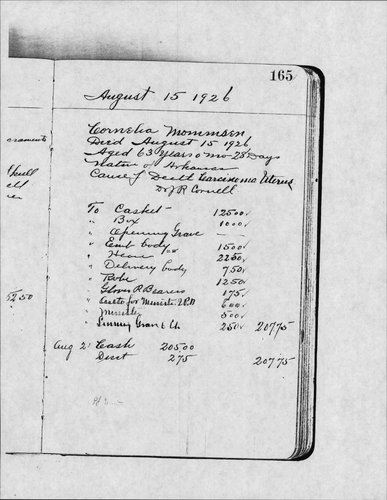 165
August 15 1926
Cornelia Mommsen
Died August 15 1926
Aged 63 Years 0 Mo 28 Days
Native of Arkansas
Cause of Death Carcinoma Uterus
Dr J R Cornell
To Casket 125 00
" Box 10 00
" Opening Grave —
" Emb body 15 00
" Hearse 22 50
" Delivery body 7 50
" Robe 12 50
" Gloves P. Bearers 1 75
" Auto for Minister & P.B 6 00
" Minister 5 00
" Lining Grave & Ch. 2 50 207 75
Aug 21 Cash 205 00
Disct 2 75 207 75
52 50